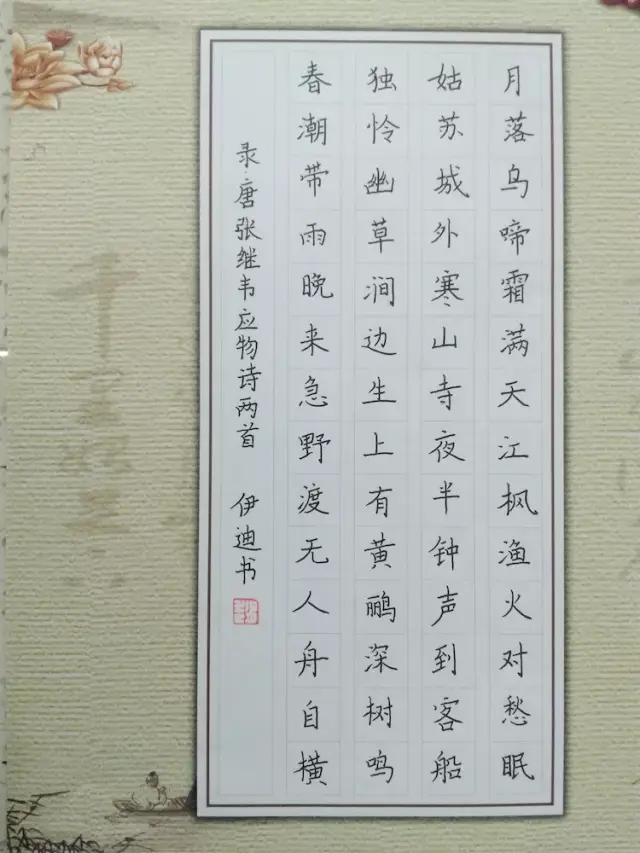 月落乌啼霜满天江枫渔火对愁眠
姑苏城外寒山寺夜半钟声到客船
独怜幽草涧边生上有黄鹂深树鸣
春潮带雨晚来急野渡无人舟自横
录·唐张继韦应物诗两首 伊迪书